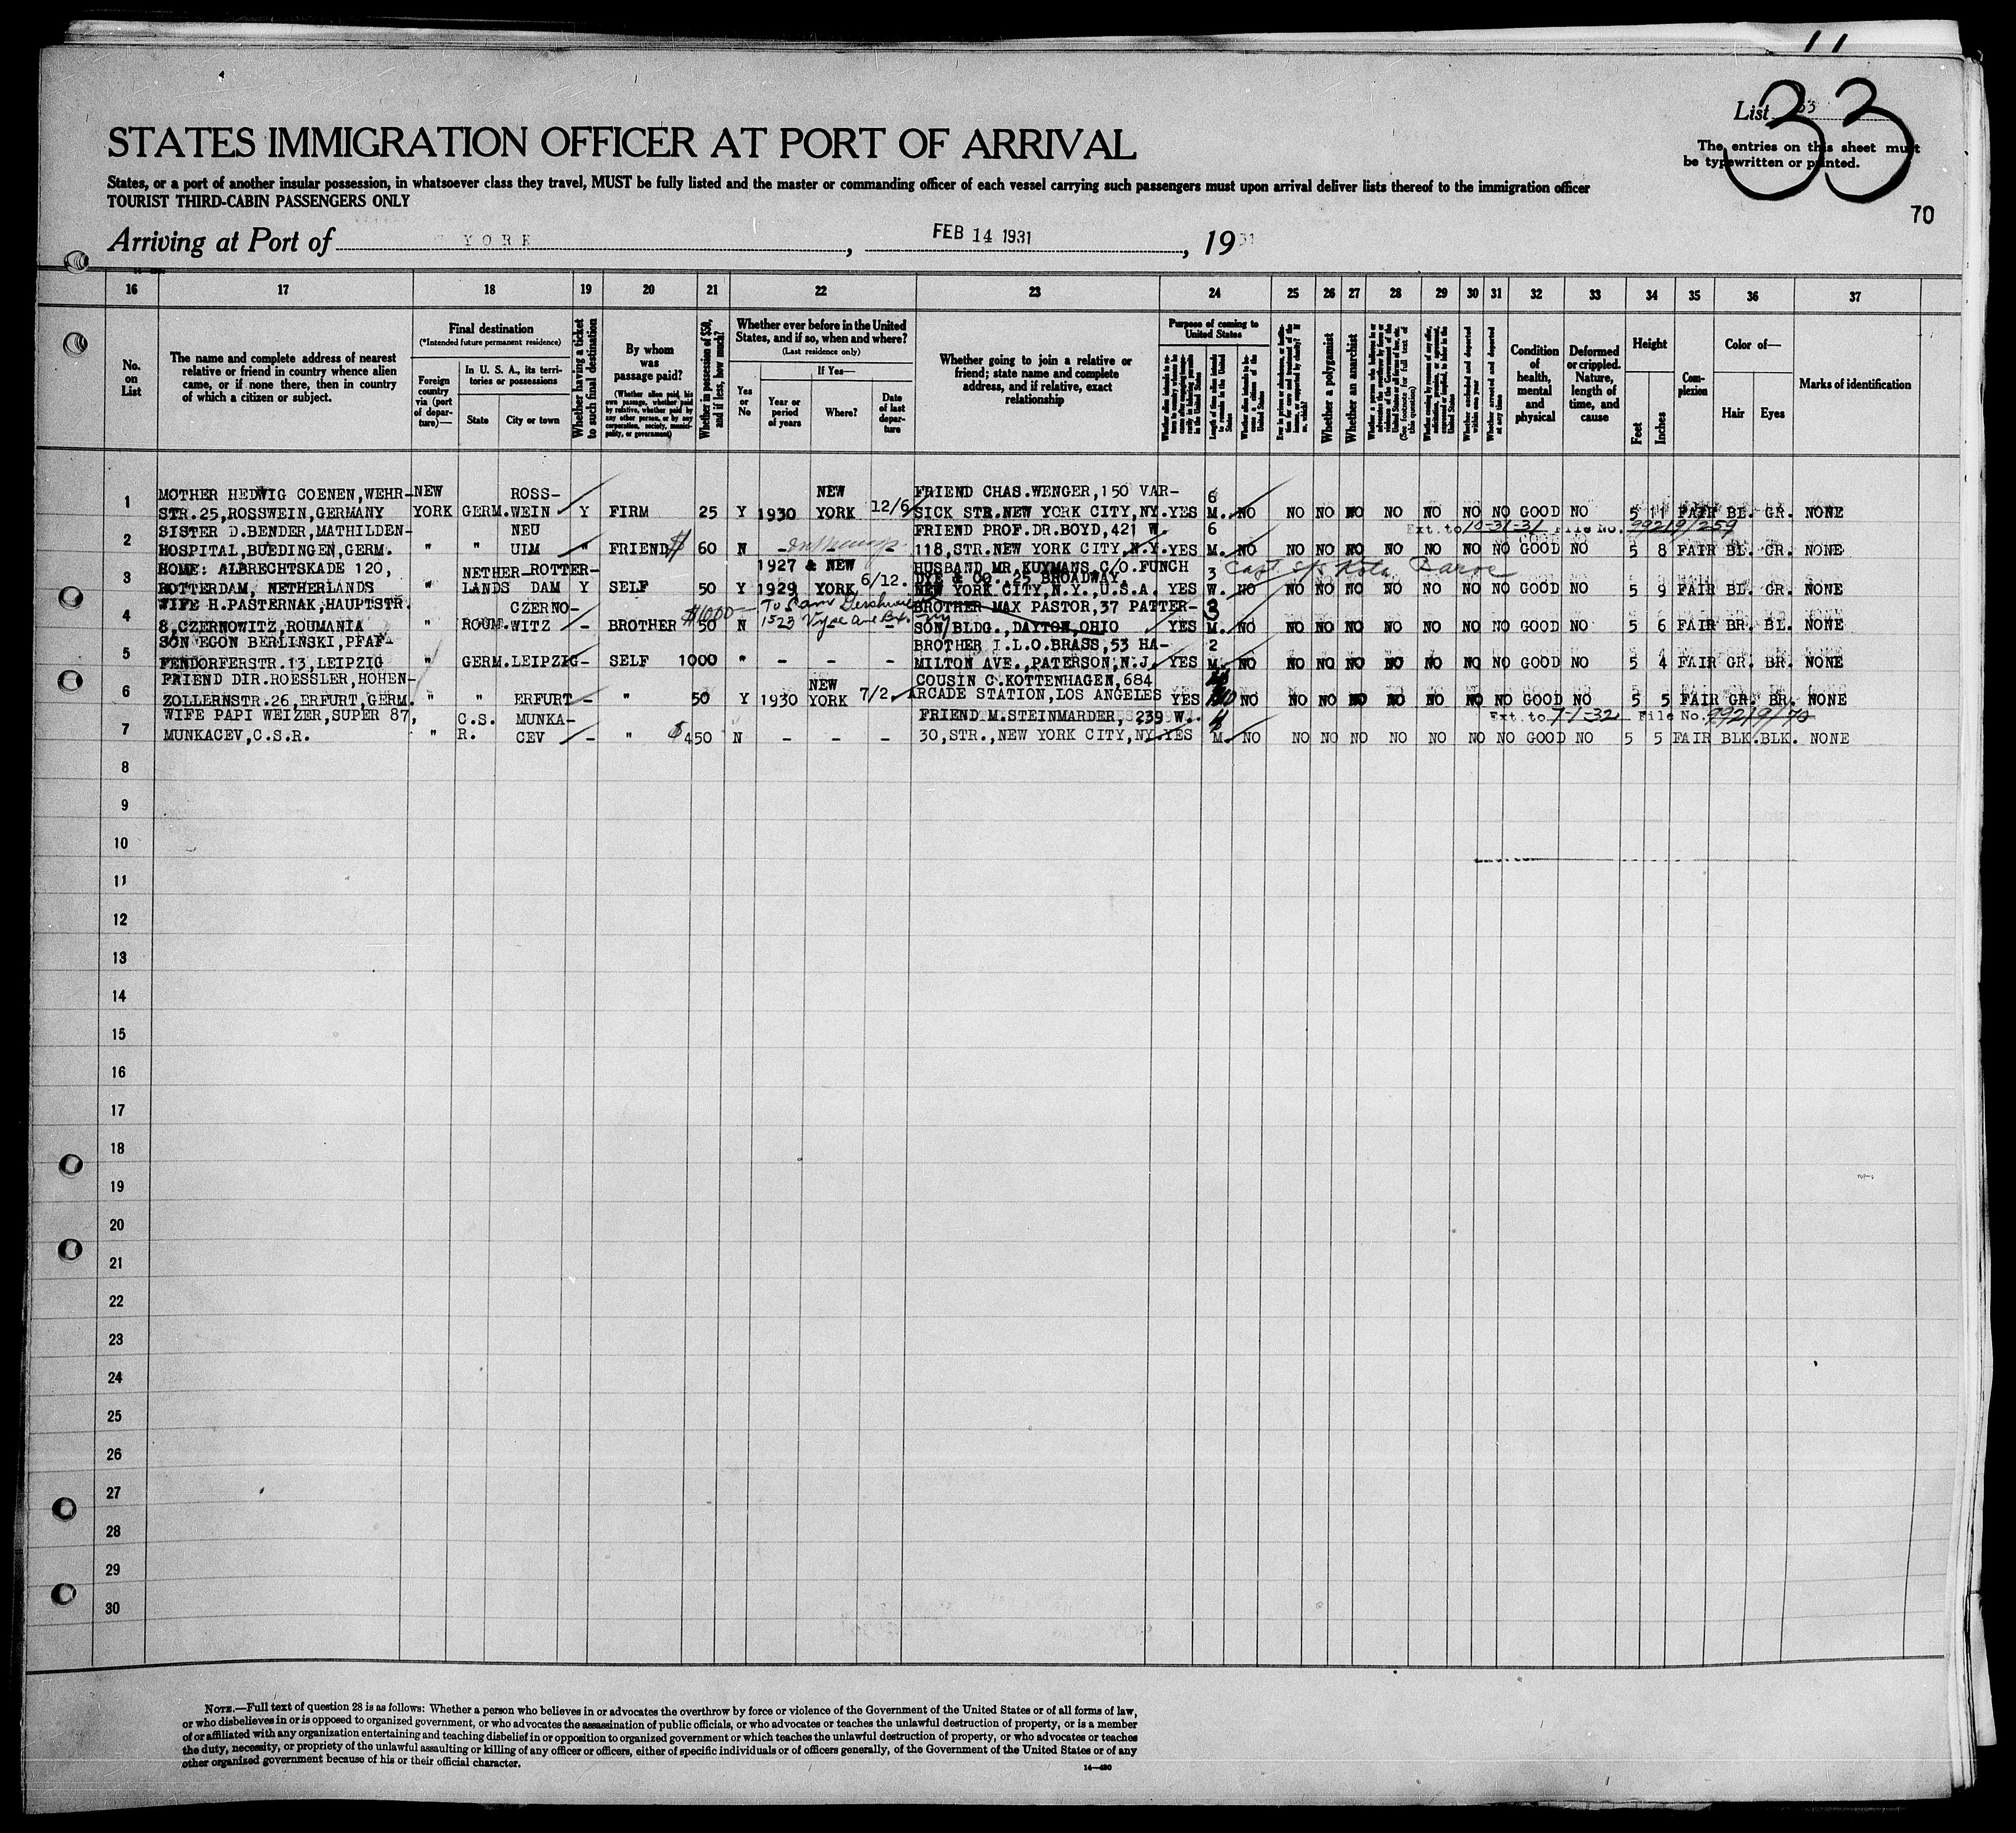 11
List 33
33
STATES IMMIGRATION OFFICER AT PORT OF ARRIVAL
The entries on this sheet must
be typewritten or printed.
States, or a port of another insular possession, in whatsoever class they travel, MUST be fully listed and the master or commanding officer of each vessel carrying such passengers must upon arrival deliver lists thereof to the immigration officer
TOURIST THIRD-CABIN PASSENGERS ONLY
70
Arriving at Port of YORK, FEB 14 1931, 1931
16 17 18 19 20 21 22 23 24 25 26 27 28 29 30 31 32 33 34 35 36 37
No. on List
The name and complete address of nearest
relative or friend in country whence alien
came, or if none there, then in country
of which a citizen or subject.
Final destination
(*Intended future permanent residence)
Foreign country via (port of departure)—
In U. S. A., its territories or possessions
State
City or town
Whether having a ticket to such final destination
By whom was passage paid?
(Whether alien paid his own passage, whether paid by relative, whether paid by any other person, or by any corporation, society, municipality, or government)
Whether in possession of $50, and if less, how much?
Whether ever before in the United
States, and if so, when and where?
(Last residence only)
Yes or No
If Yes—
Year or period of years
Where?
Date of last departure
Whether going to join a relative or
friend; state name and complete
address, and if relative, exact
relationship
Purpose of coming to United States
Length of time alien intends to remain in the United States
Whether alien intends to become a citizen of the United States
Whether a polygamist
Whether an anarchist
Whether excluded and deported within one year
Whether arrested and deported at any time
Condition of health, mental and physical
Deformed or crippled. Nature, length of time, and cause
Height
Feet
Inches
Complexion
Color of—
Hair
Eyes
Marks of identification
1 MOTHER HEDWIG COENEN,WEHR- NEW ROSS- NEW FRIEND CHAS.WENGER,150 VAR- 6
STR.25,ROSSWEIN,GERMANY YORK GERM. WEIN Y FIRM 25 Y 1930 YORK 12/6 SICK STR.NEW YORK CITY,NY. YES M. NO NO NO NO NO NO NO NO GOOD NO 5 11 FAIR BL. GR. NONE
2 SISTER D.BENDER,MATHILDEN- NEU FRIEND PROF.DR.BOYD,421 W. 6 Ext. to 10-31-31 File No. 99219/259
HOSPITAL,BUEDINGEN,GERM. " " ULM " FRIEND $ 60 N - 118,STR.NEW YORK CITY,N.Y. YES M. NO NO NO NO NO NO NO NO GOOD NO 5 8 FAIR BL. GR. NONE
3 HOME: ALBRECHTSKADE 120, NETHER- ROTTER- 1927 & NEW HUSBAND MR.KUYMANS,C/O.FUNCH 3 Capt. s/s Kota Baroe
DYE & CO.,25 BROADWAY,
ROTTERDAM, NETHERLANDS " LANDS DAM Y SELF 50 Y 1929 YORK 6/12. NEW YORK CITY,N.Y.,U.S.A. YES W. NO NO NO NO NO NO NO NO GOOD NO 5 9 FAIR BL. GR. NONE
4 WIFE H.PASTERNAK,HAUPTSTR. CZERNO- $1000- To Sam BROTHER MAX PASTOR,37 PATTER- 3
1523 Vyse Ave Bx. NY
8,CZERNOWITZ,ROUMANIA " ROUM. WITZ - BROTHER 50 N - SON BLDG.,DAYTON,OHIO YES M. NO NO NO NO NO NO NO NO GOOD NO 5 6 FAIR BR. BL. NONE
5 SON EGON BERLINSKI,PFAF- BROTHER I.L.O.BRASS,53 HA- 2
FENDORFERSTR.13,LEIPZIG " GERM. LEIPZIG - SELF 1000 " - - - MILTON AVE.,PATERSON,N.J. YES M. NO NO NO NO NO NO NO NO GOOD NO 5 4 FAIR GR. BR. NONE
6 FRIEND DIR.ROESSLER,HOHEN- NEW COUSIN C.KOTTENHAGEN,684
ZOLLERNSTR.26,ERFURT,GERM. " " ERFURT - " 50 Y 1930 YORK 7/2. ARCADE STATION,LOS ANGELES YES NO NO NO NO NO NO NO NO GOOD NO 5 5 FAIR GR. BR. NONE
7 WIFE PAPI WEIZER,SUPER 87, C.S. MUNKA- FRIEND M.STEINMARDER, 239 W. Ext. to 7-1-32 File No. 99219/70
MUNKACEV,C.S.R. " R. CEV - " $450 N - - - 30,STR.,NEW YORK CITY,NY. YES M. NO NO NO NO NO NO NO NO GOOD NO 5 5 FAIR BLK. BLK. NONE
8
9
10
11
12
13
14
15
16
17
18
19
20
21
22
23
24
25
26
27
28
29
30
NOTE.—Full text of question 28 is as follows: Whether a person who believes in or advocates the overthrow by force or violence of the Government of the United States or of all forms of law,
or who disbelieves in or is opposed to organized government, or who advocates the assassination of public officials, or who advocates or teaches the unlawful destruction of property, or is a member
of or affiliated with any organization entertaining and teaching disbelief in or opposition to organized government or which teaches the unlawful destruction of property, or who advocates or teaches
the duty, necessity, or propriety of the unlawful assaulting or killing of any officer or officers, either of specific individuals or of officers generally, of the Government of the United States or of any
other organized government because of his or their official character.
14—430